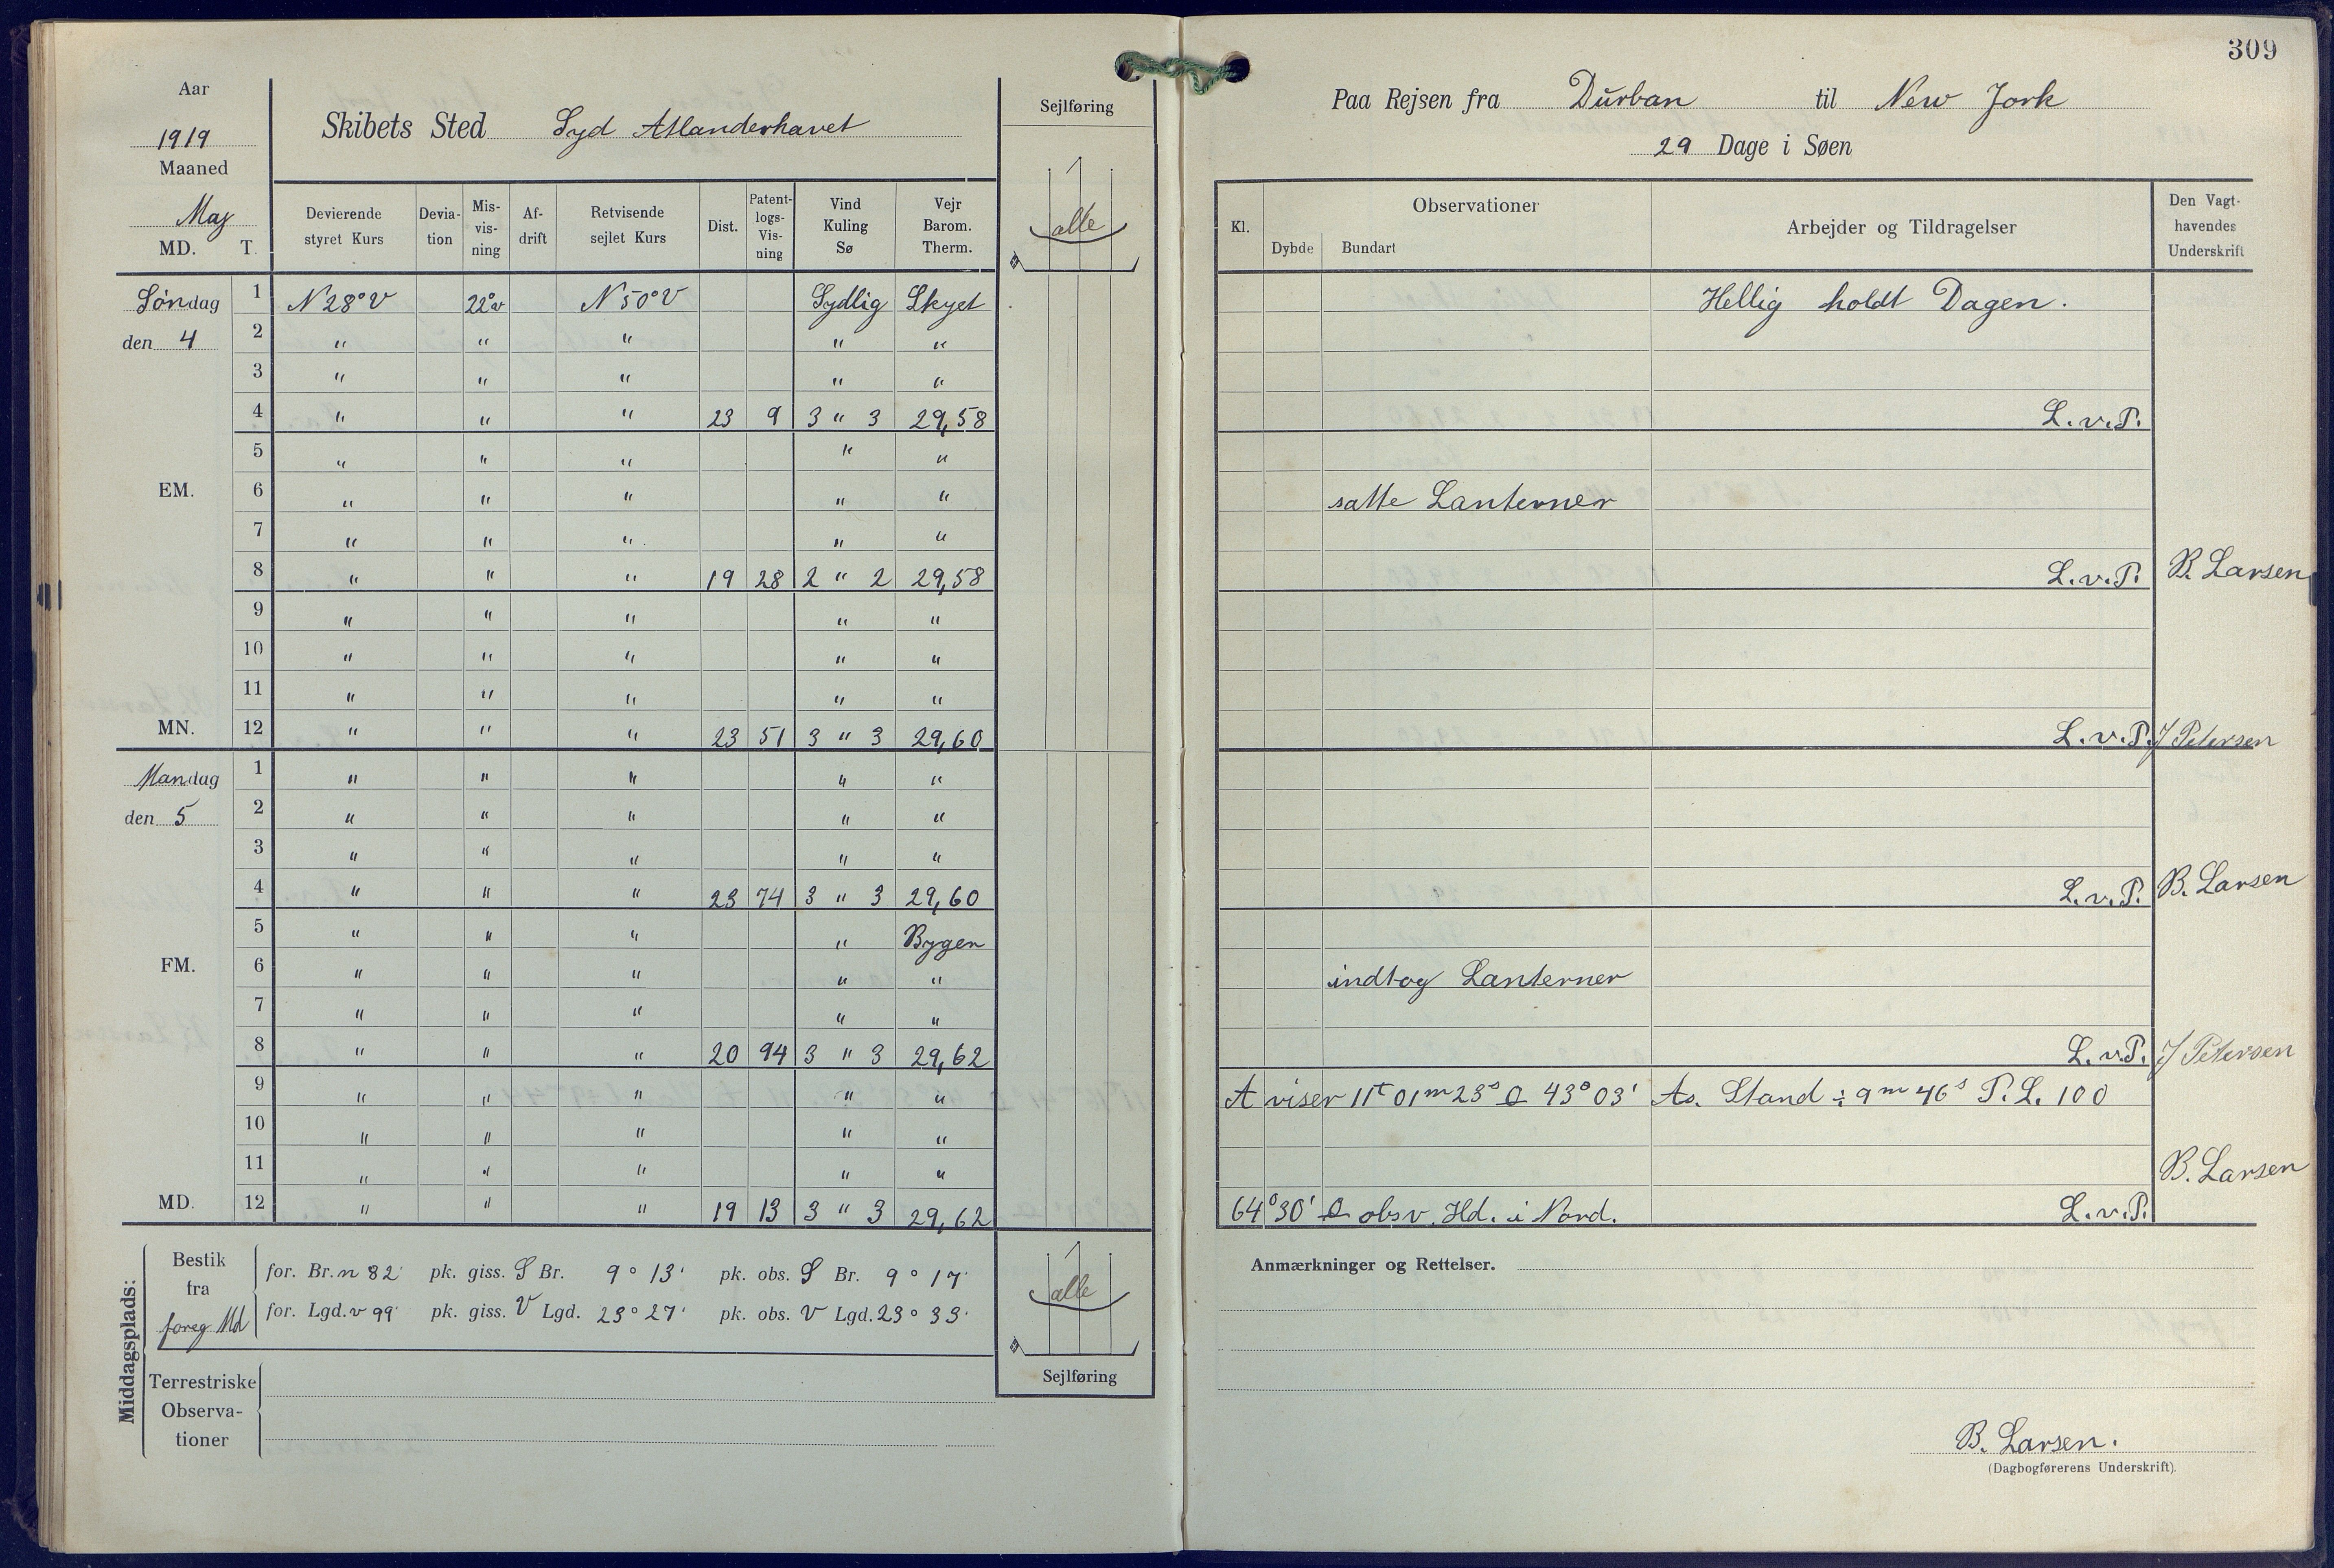 309
Aar
1919
Maaned
May
MD. T.
Skibets Sted Syd Atlanderhavet
Sejlføring
alle
Devierende styret Kurs
Devia-tion
Mis-vis-ning
Af-drift
Retvisende sejlet Kurs
Dist.
Patent-logs-Vis-ning
Vind Kuling Sø
Vejr Barom. Therm.
Søndag 1 N 28° V 22° v N 50° V Sydlig Skyet
den 4 2 " " " " "
3 " " " " "
4 " " " 23 9 3 " 3 29,58
5 " " " " "
EM. 6 " " " " "
7 " " " " "
8 " " " 19 28 2 " 2 29,58
9 " " " " "
10 " " " " "
11 " " " " "
MN. 12 " " " 23 51 3 " 3 29,60
Mandag 1 " " " " "
den 5 2 " " " " "
3 " " " " "
4 " " " 23 74 3 " 3 29,60
5 " " " " Bygen
FM. 6 " " " " "
7 " " " " "
8 " " " 20 94 3 " 3 29,62
9 " " " " "
10 " " " " "
11 " " " " "
MD. 12 " " " 19 13 3 " 3 29,62
Middagsplads:
Bestik fra foreg Md
for. Br. n 82' pk. giss. S Br. 9° 13' pk. obs. S Br. 9° 17'
for. Lgd. v 99' pk. giss. V Lgd. 23° 27' pk. obs. V Lgd. 23° 33'
Terrestriske
Observa-
tioner
alle
Sejlføring
Paa Rejsen fra Durban til New Jork
29 Dage i Søen
Kl.
Observationer
Dybde Bundart
Arbejder og Tildragelser
Den Vagt-
havendes
Underskrift
Hellig holdt Dagen.
L.v.P.
satte Lanterner
L.v.P. B. Larsen
L.v.P. J Petersen
L.v.P. B. Larsen
indtog Lanterner
L.v.P. J Petersen
A viser 11t 01m 23s ☉ 43° 03' As. Stand ÷ 9m 46s P. L. 100
B. Larsen
64° 30' ☉ obsv. Hd. i Nord. L.v.P.
Anmærkninger og Rettelser.
B. Larsen.
(Dagbogførerens Underskrift).